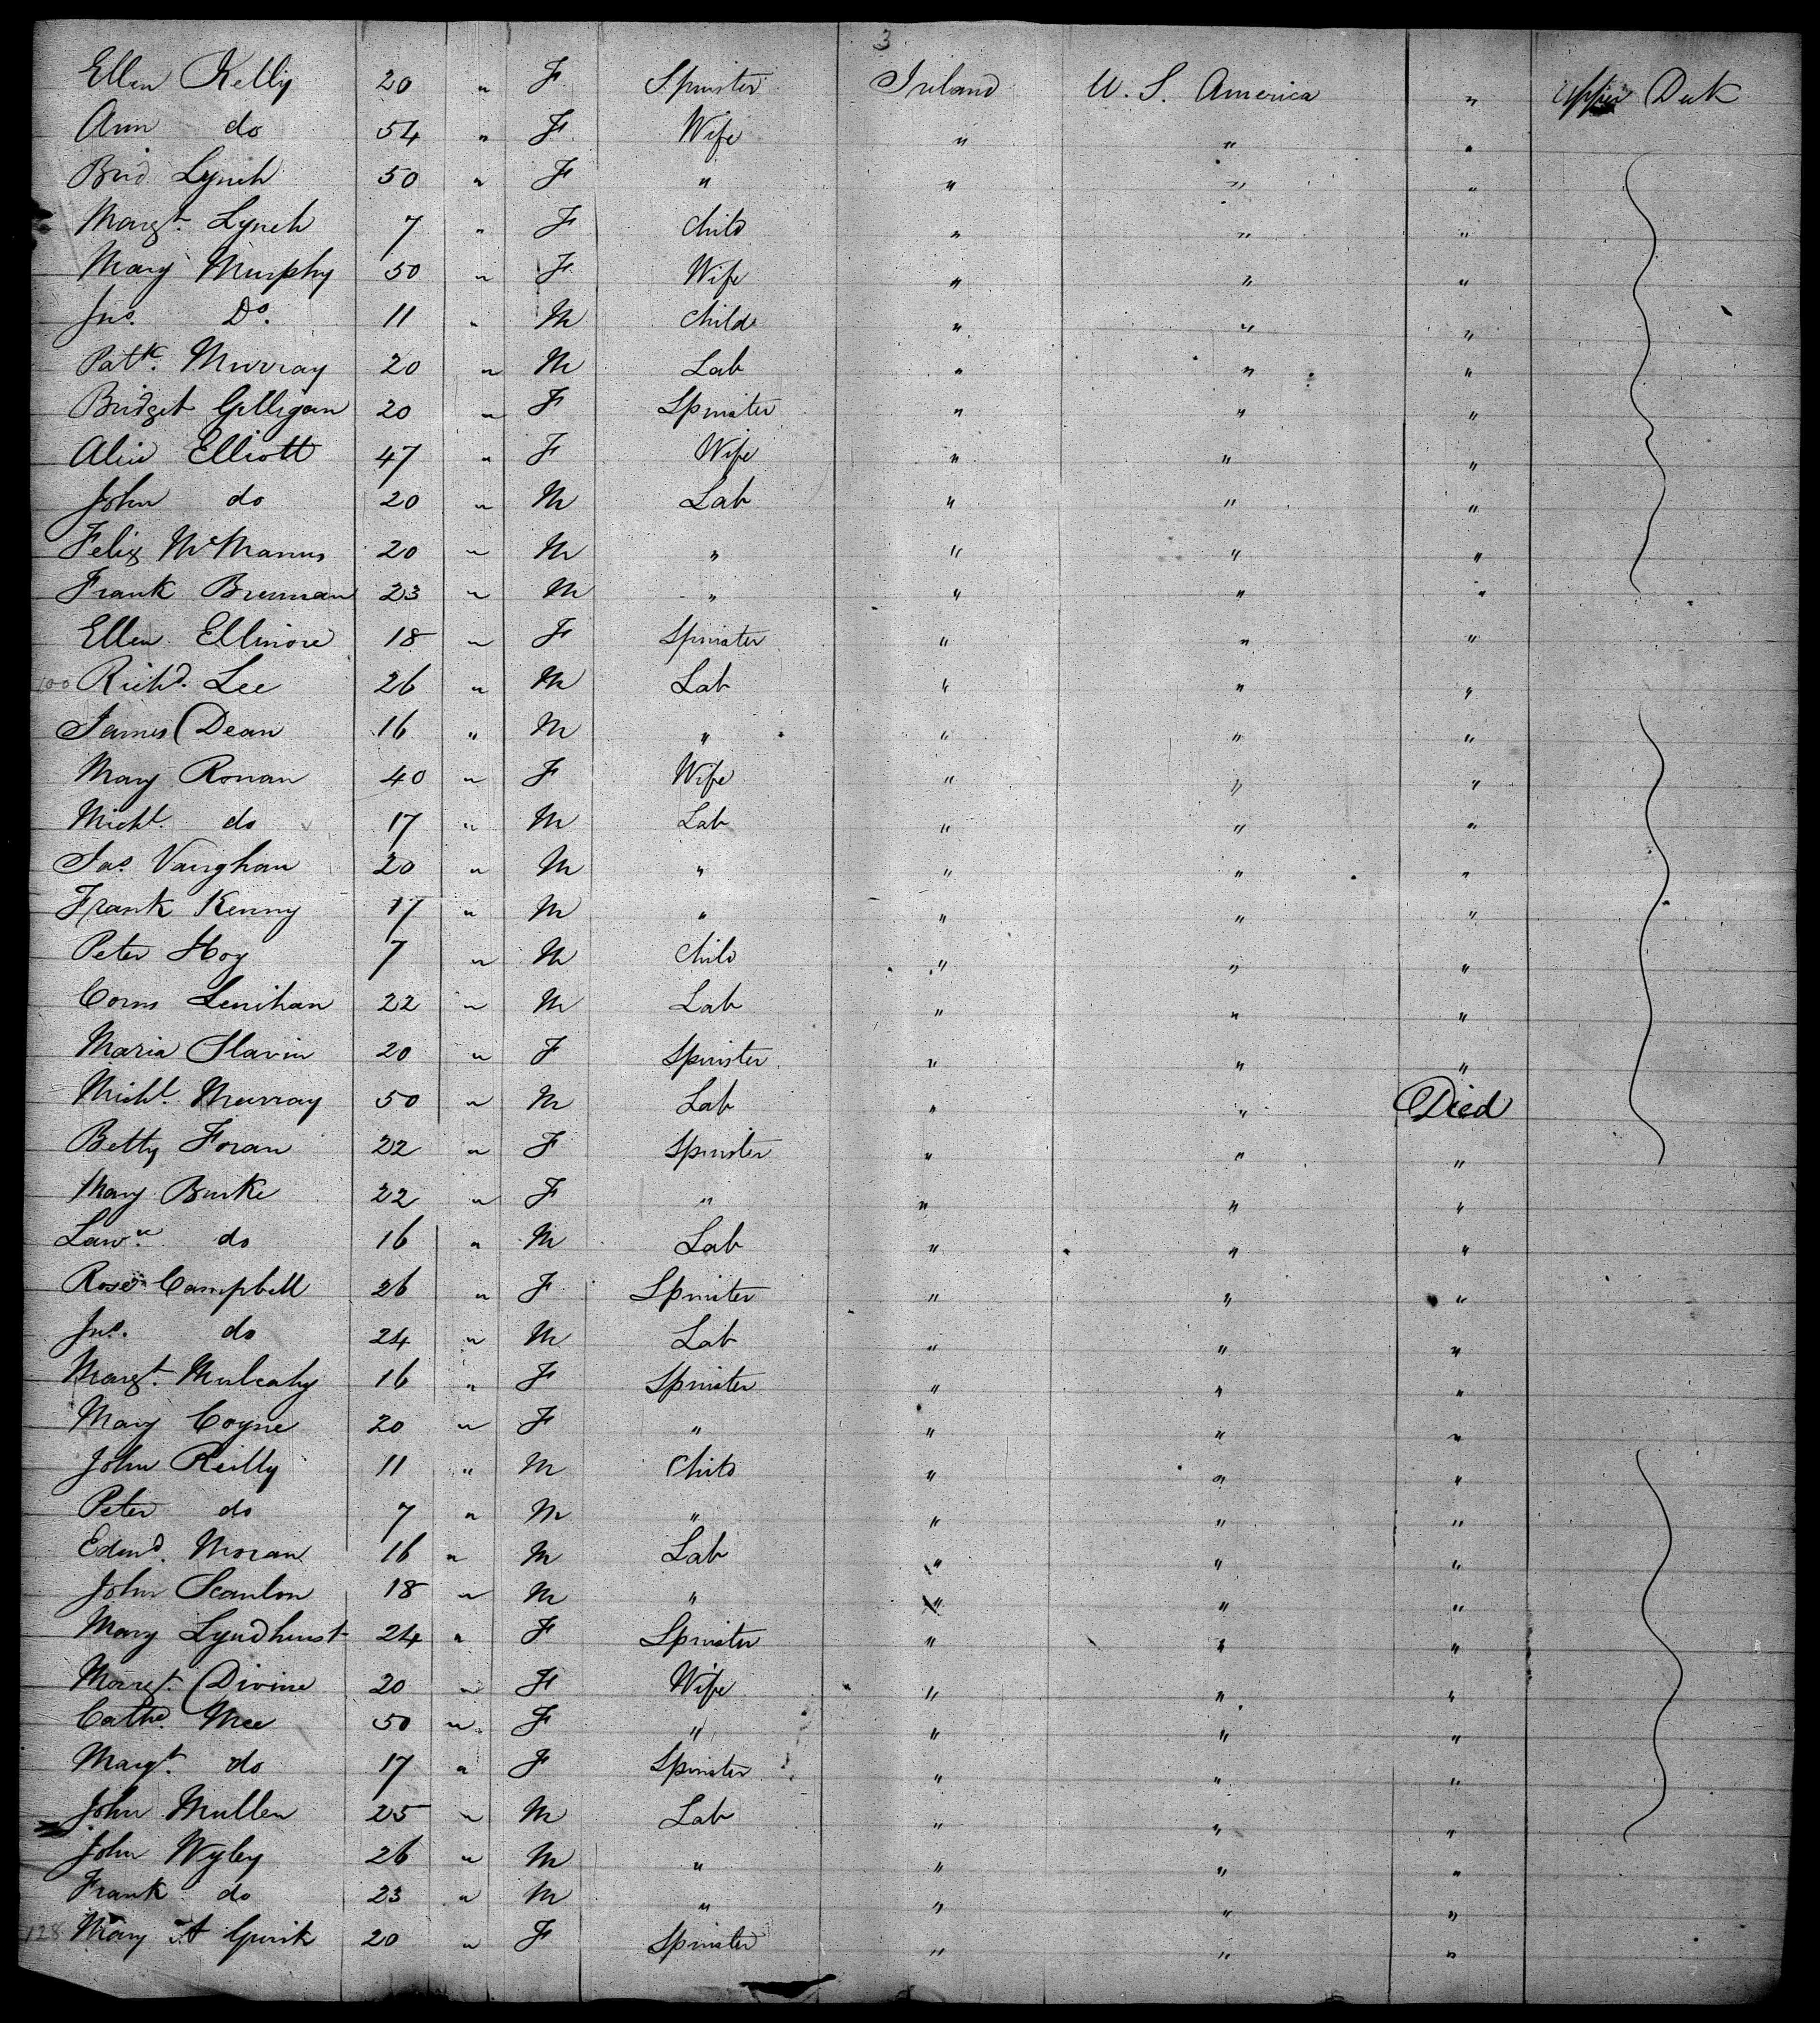 3
Ellen Kelly 20 " F Spinster Ireland U. S. America " Upper Deck
Ann do 54 " F Wife " " "
Brid Lynch 50 " F " " " "
Margt. Lynch 7 " F Child " " "
Mary Murphy 50 " F Wife " " "
Jno. Do. 11 " M Child " " "
Patk. Murray 20 " M Lab " " "
Bridget Gilligan 20 " F Spinster " " "
Alice Elliott 47 " F Wife " " "
John do 20 " M Lab " " "
Felix McManus 20 " M " " " "
Frank Brennan 23 " M " " " "
Ellen Ellinore 18 " F Spinster " " "
100 Richd. Lee 26 " M Lab " " "
James Dean 16 " M " " " "
Mary Ronan 40 " F Wife " " "
Michl. do 17 " M Lab " " "
Jas. Vaughan 20 " M " " " "
Frank Kenny 17 " M " " " "
Peter Hoy 7 " M Child " " "
Corns Lenihan 22 " M Lab " " "
Maria Slavin 20 " F Spinster " " "
Michl. Murray 50 " M Lab " " Died
Betty Foran 22 " F Spinster " " "
Mary Burke 22 " F " " " "
Lawce. do 16 " M Lab " " "
Rose Campbell 26 " F Spinster " " "
Jno. do 24 " M Lab " " "
Margt. Mulcahy 16 " F Spinster " " "
Mary Coyne 20 " F " " " "
John Reilly 11 " M Child " " "
Peter do 7 " M " " " "
Edmd. Moran 16 " M Lab " " "
John Scanlon 18 " M " " " "
Mary Lyndhurst 24 " F Spinster " " "
Margt. Divine 20 " F Wife " " "
Cathe. Mee 50 " F " " " "
Margt. do 17 " F Spinster " " "
John Mullen 25 " M Lab " " "
John Wyley 26 " M " " " "
Frank do 23 " M " " " "
128 Mary A 20 " F Spinster " " "